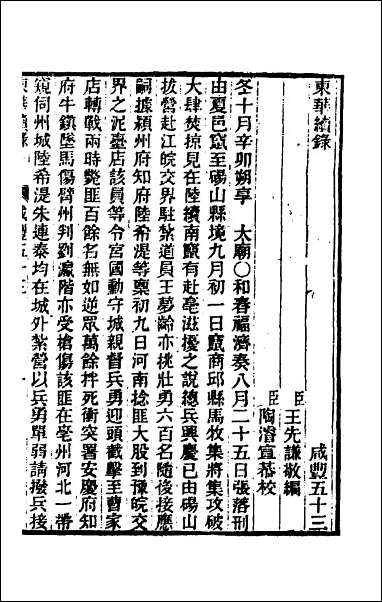 東華續錄
咸豐五十三
臣王先謙敬編
臣陶濬宣恭校
冬十月辛卯朔享　太廟〇和春福濟奏八月二十五日張落刑
由夏邑竄至碭山縣境九月初一日竄商邱縣馬牧集將集攻破
大肆焚掠見在陸續南竄有赴亳滋擾之說總兵興慶已由碭山
拔營赴江皖交界駐紮道員王夢齡亦挑壯勇六百名隨後接應
嗣據潁州府知府陸希湜等稟初九日河南捻匪大股到豫皖交
界之泥臺店該員等令宮國勳守城親督兵勇迎頭截擊至曹家
店轉戰兩時斃匪百餘名無如逆眾萬餘拌死衝突署安慶府知
府牛鎮墜馬傷臂州判劉瀛階亦受槍傷該匪在亳州河北一帶
窺伺州城陸希湜朱連泰均在城外紮營以兵勇單弱請撥兵接